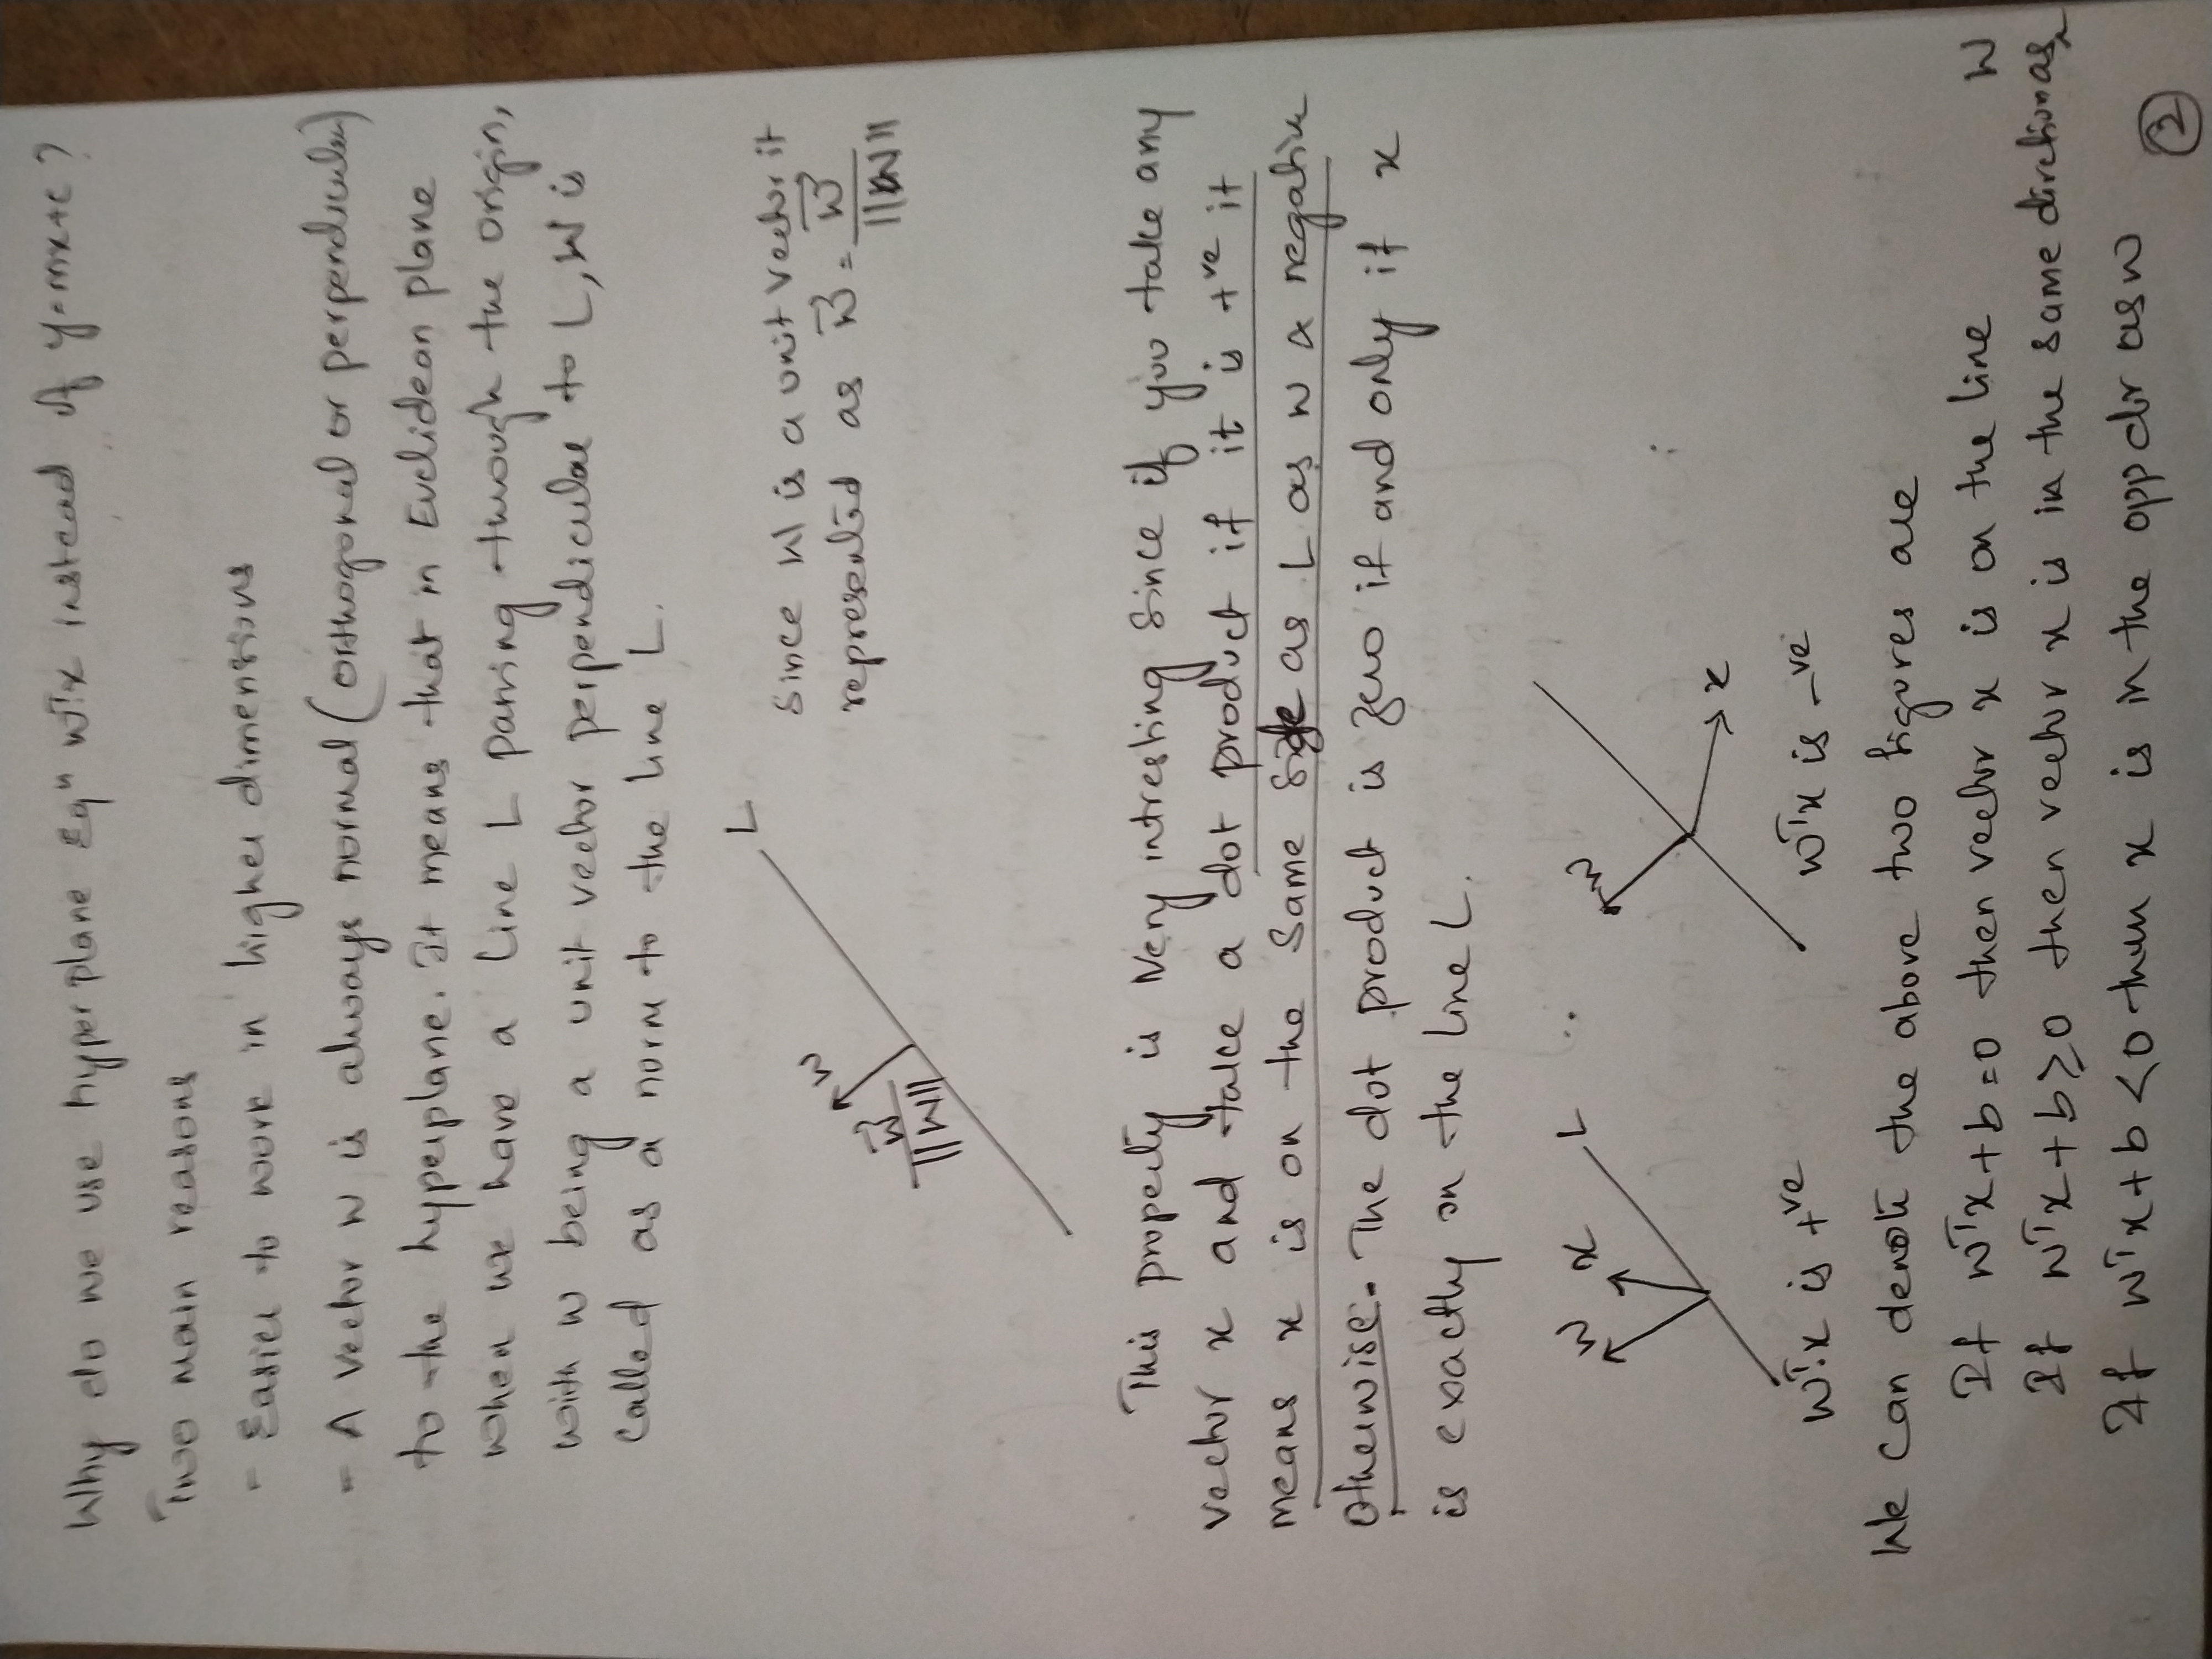 Why do we use hyper plane Eqn wTx instead of y=mx+c ?
Two main reasons
- Easier to work in higher dimensions
- A vector w is always normal (orthogonal or perpendicular)
to the hyperplane. It means that in Euclidean plane
when we have a line L passing through the origin,
with w being a unit vector perpendicular to L, W is
called as a norm to the line L.
L
w
w⃗ / ||W||
Since W is a unit vector it
represented as w⃗ = w⃗ / ||W||
This property is Very intresting Since if you take any
vector x and take a dot product if it is +ve it
means x is on the Same Side as L as w & negative
otherwise. The dot product is zero if and only if x
is exactly on the line L.
w x L
w
x
wTx is +ve wTx is -ve
We can denote the above two figures are
If wTx+b=0 then vector x is on the line
If wTx+b≥0 then vector x is in the same direction as W
If wTx+b<0 then x is in the opp dir as w
2